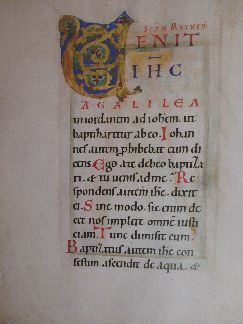 SCDM MATHEV
VENIT
IHC
A GALILEA
in iordanem ad iohem. ut
baptizaretur ab eo. Iohan
nes autem phibebat eum di
cens Ego a te debeo baptiza
ri. & tu uenis ad me. Re
spondens autem ihc dixit
ei. Sine modo. sic enim de
cet nos implere omnem iusti
ciam Tunc dimisit eum.
Baptizatus autem ihc con
festim ascendit de aqua. &